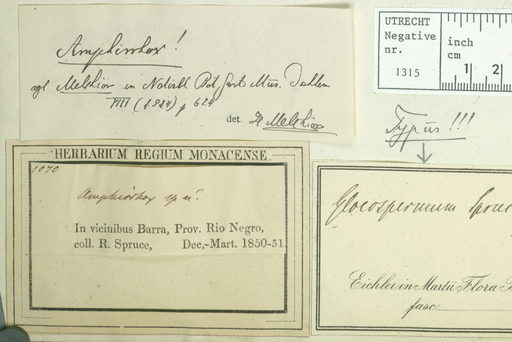 Amphirrhox!
vgl Melchior in Notizbl Bot. Gart. Mus. Dahlem
VIII (1924) p 628
det. H Melchior
UTRECHT
Negative
nr.
1315
inch
cm
1 2
Typus!!!
HERBARIUM REGIUM MONACENSE.
1070
Amphirrhox sp n?
In vicinibus Barra, Prov. Rio Negro,
coll. R. Spruce, Dec,-Mart. 1850-51.
Gloeospermum Spruc
Eichler in Martii Flora
fasc